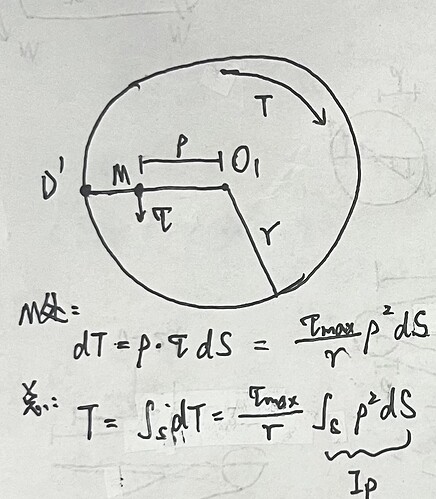 T
ρ
D' M O₁
τ
r
M处:
dT = ρ·τ dS = τmax/r ρ² dS
T = ∫s dT = τmax/r ∫s ρ² dS
Iρ